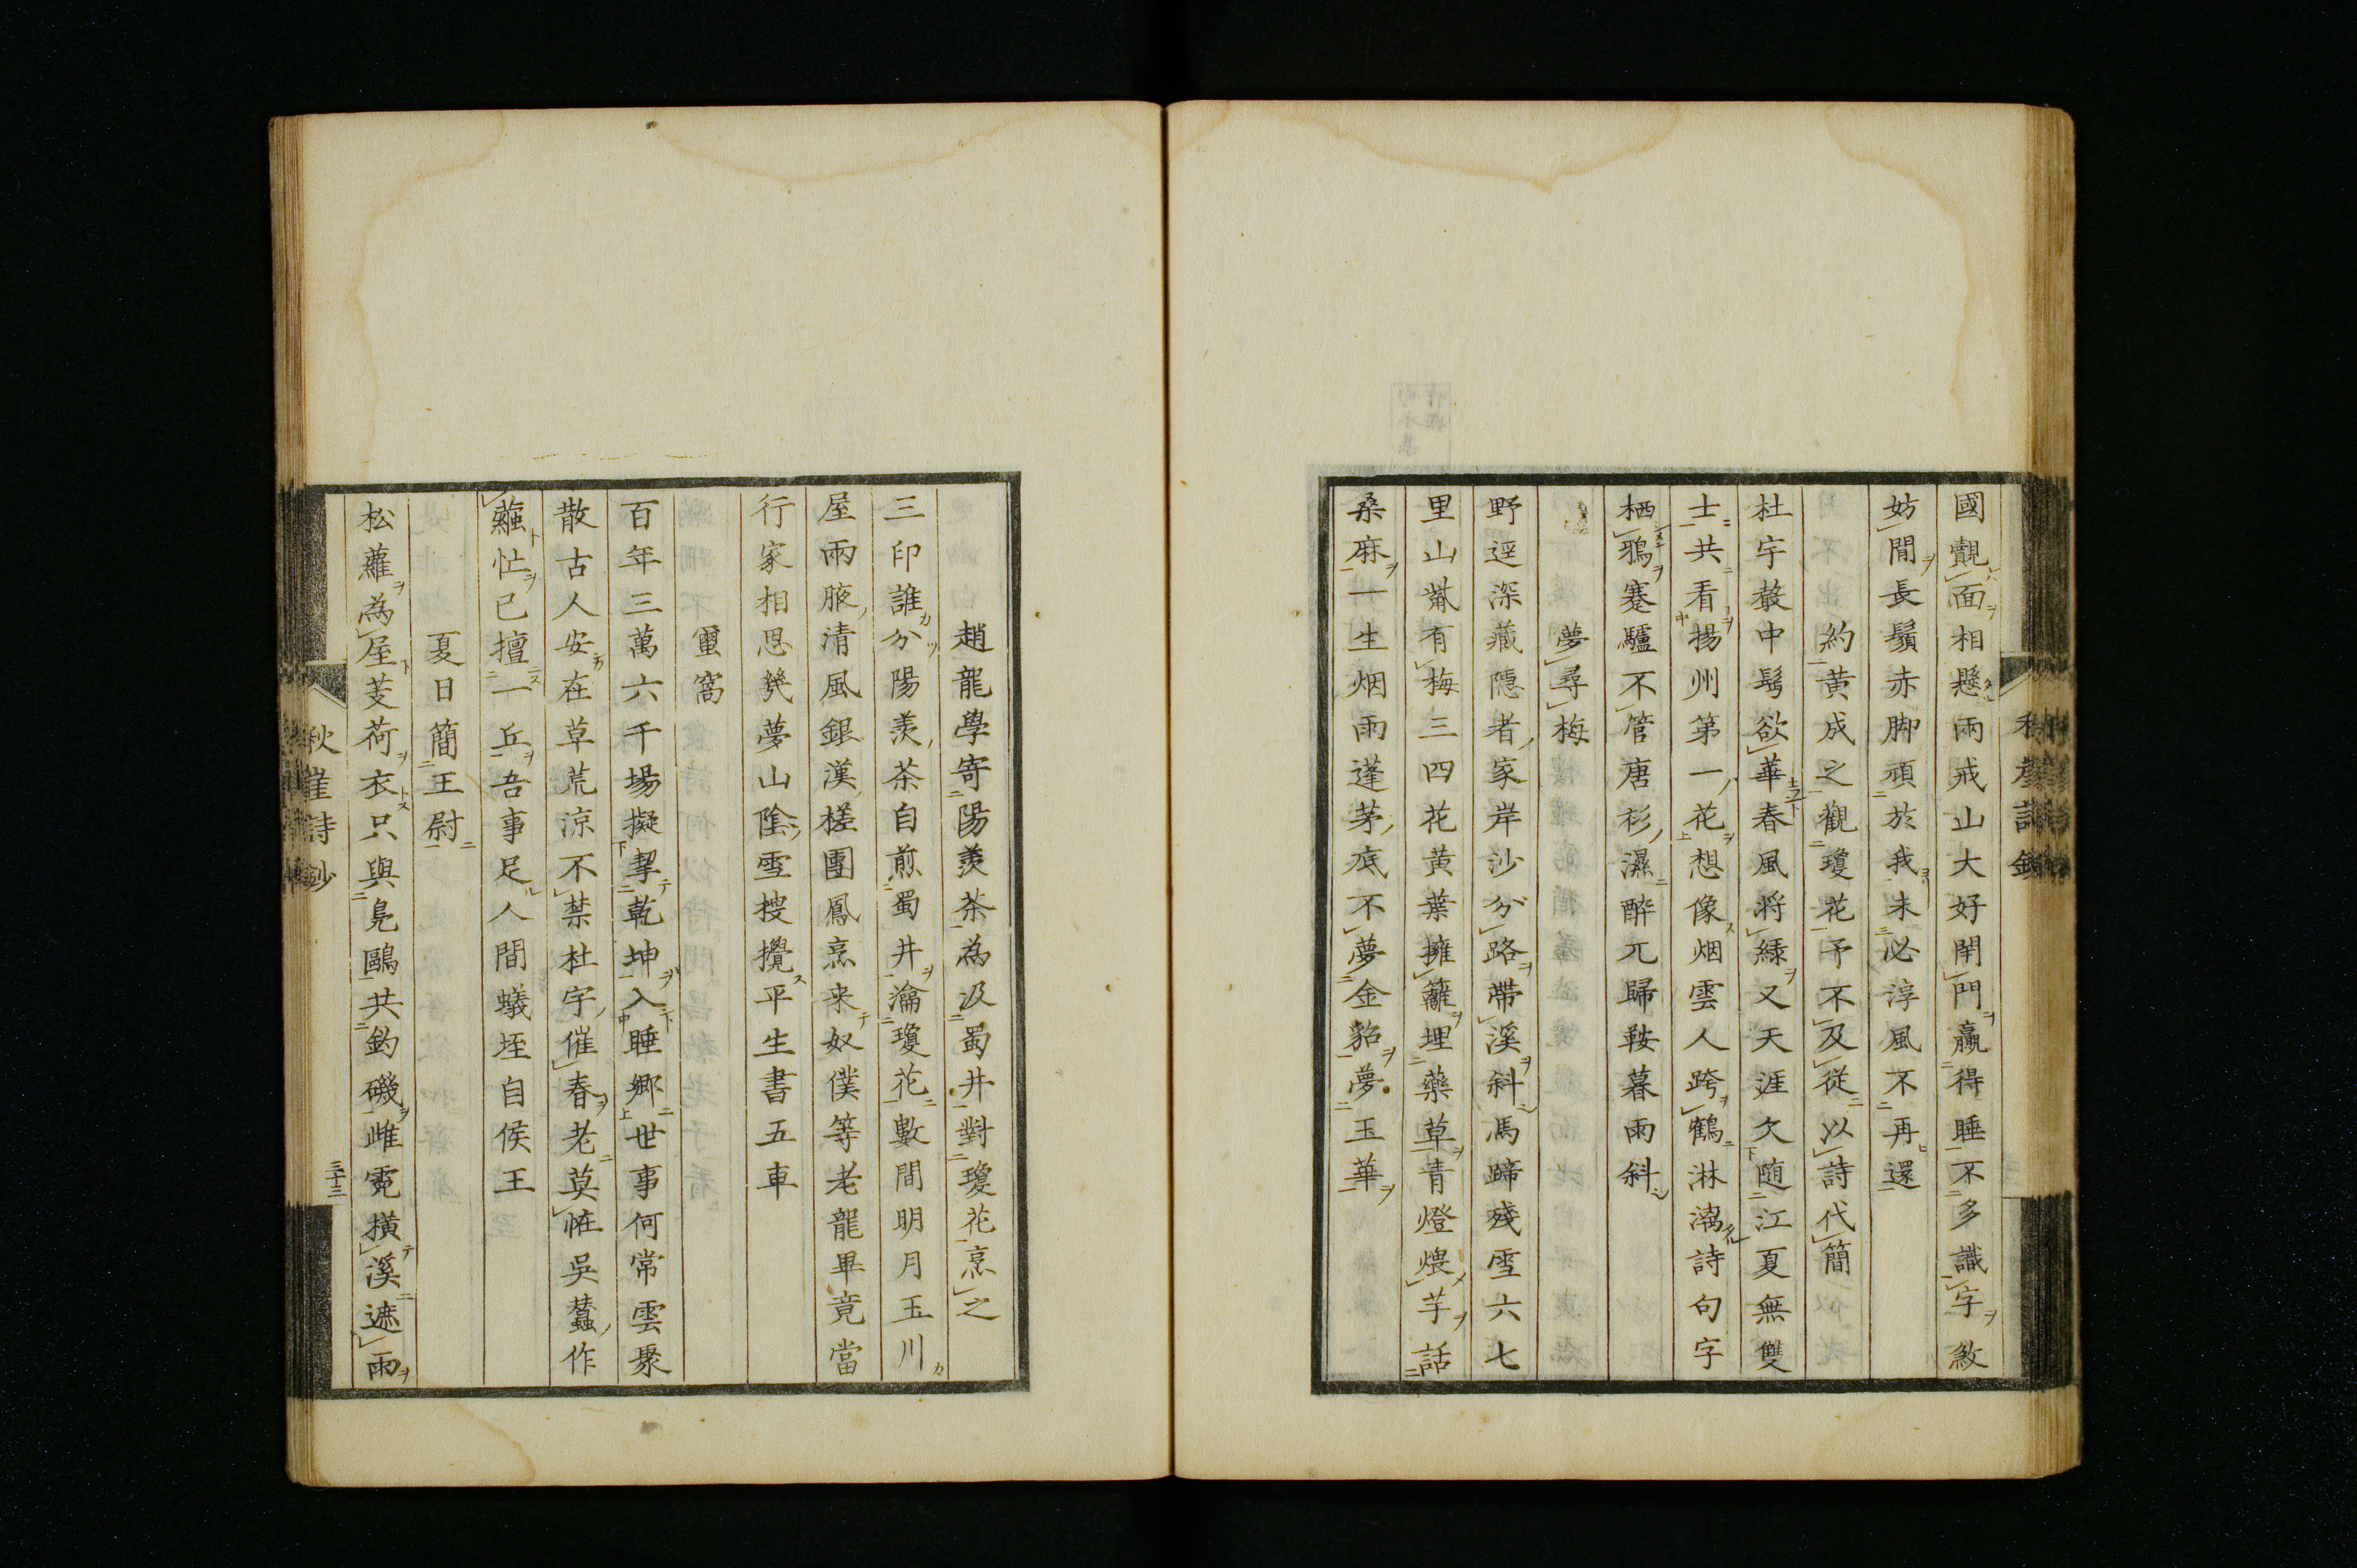 國覿面相懸兩戒山大好閉門贏得睡不多識字救
妨閒長鬚赤脚頑於我未必淳風不再還
約黄成之觀瓊花予不及從以詩代簡
杜宇嚴中髩欲華春風将緑又天涯欠随江夏無雙
士共看揚州第一花想像烟雲人跨鶴淋漓詩句字
栖鴉蹇驢不管唐衫濕醉兀歸鞍暮雨斜
夢尋梅
野逕深藏隠者家岸沙分路帶溪斜馮蹄殘雪六七
里山觜有梅三四花黄葉擁籬埋藥草青燈煨芋話
桑麻一生烟雨蓬茅底不夢金貂夢玉華
趙龍學寄陽羨茶為汲蜀井對瓊花烹之
三印誰分陽羨茶自煎蜀井瀹瓊花數間明月玉川
屋兩腋清風銀漢槎團鳳烹来奴僕等老龍畢竟當
行家相思幾夢山陰雪搜攪平生書五車
蜜窩
百年三萬六千場擬挈乾坤入睡郷世事何常雲聚
散古人安在草荒涼不禁杜宇催春老莫恠吳蠶作
繭忙已擅一丘吾事足人間蟻垤自侯王
夏日簡王尉
松蘿為屋芰荷衣只與鳬鷗共釣磯雌霓横溪遮雨
秋崖詩鈔
三十三